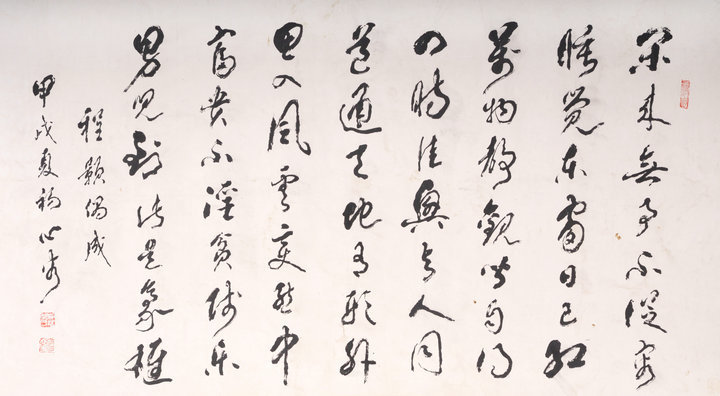 閑來無事不從容
睡覺東窗日已紅
萬物靜觀皆自得
四時佳興與人同
道通天地有形外
思入風雲變態中
富貴不淫貧賤樂
男兒到此是豪雄
程顥偶成
甲戌夏初心